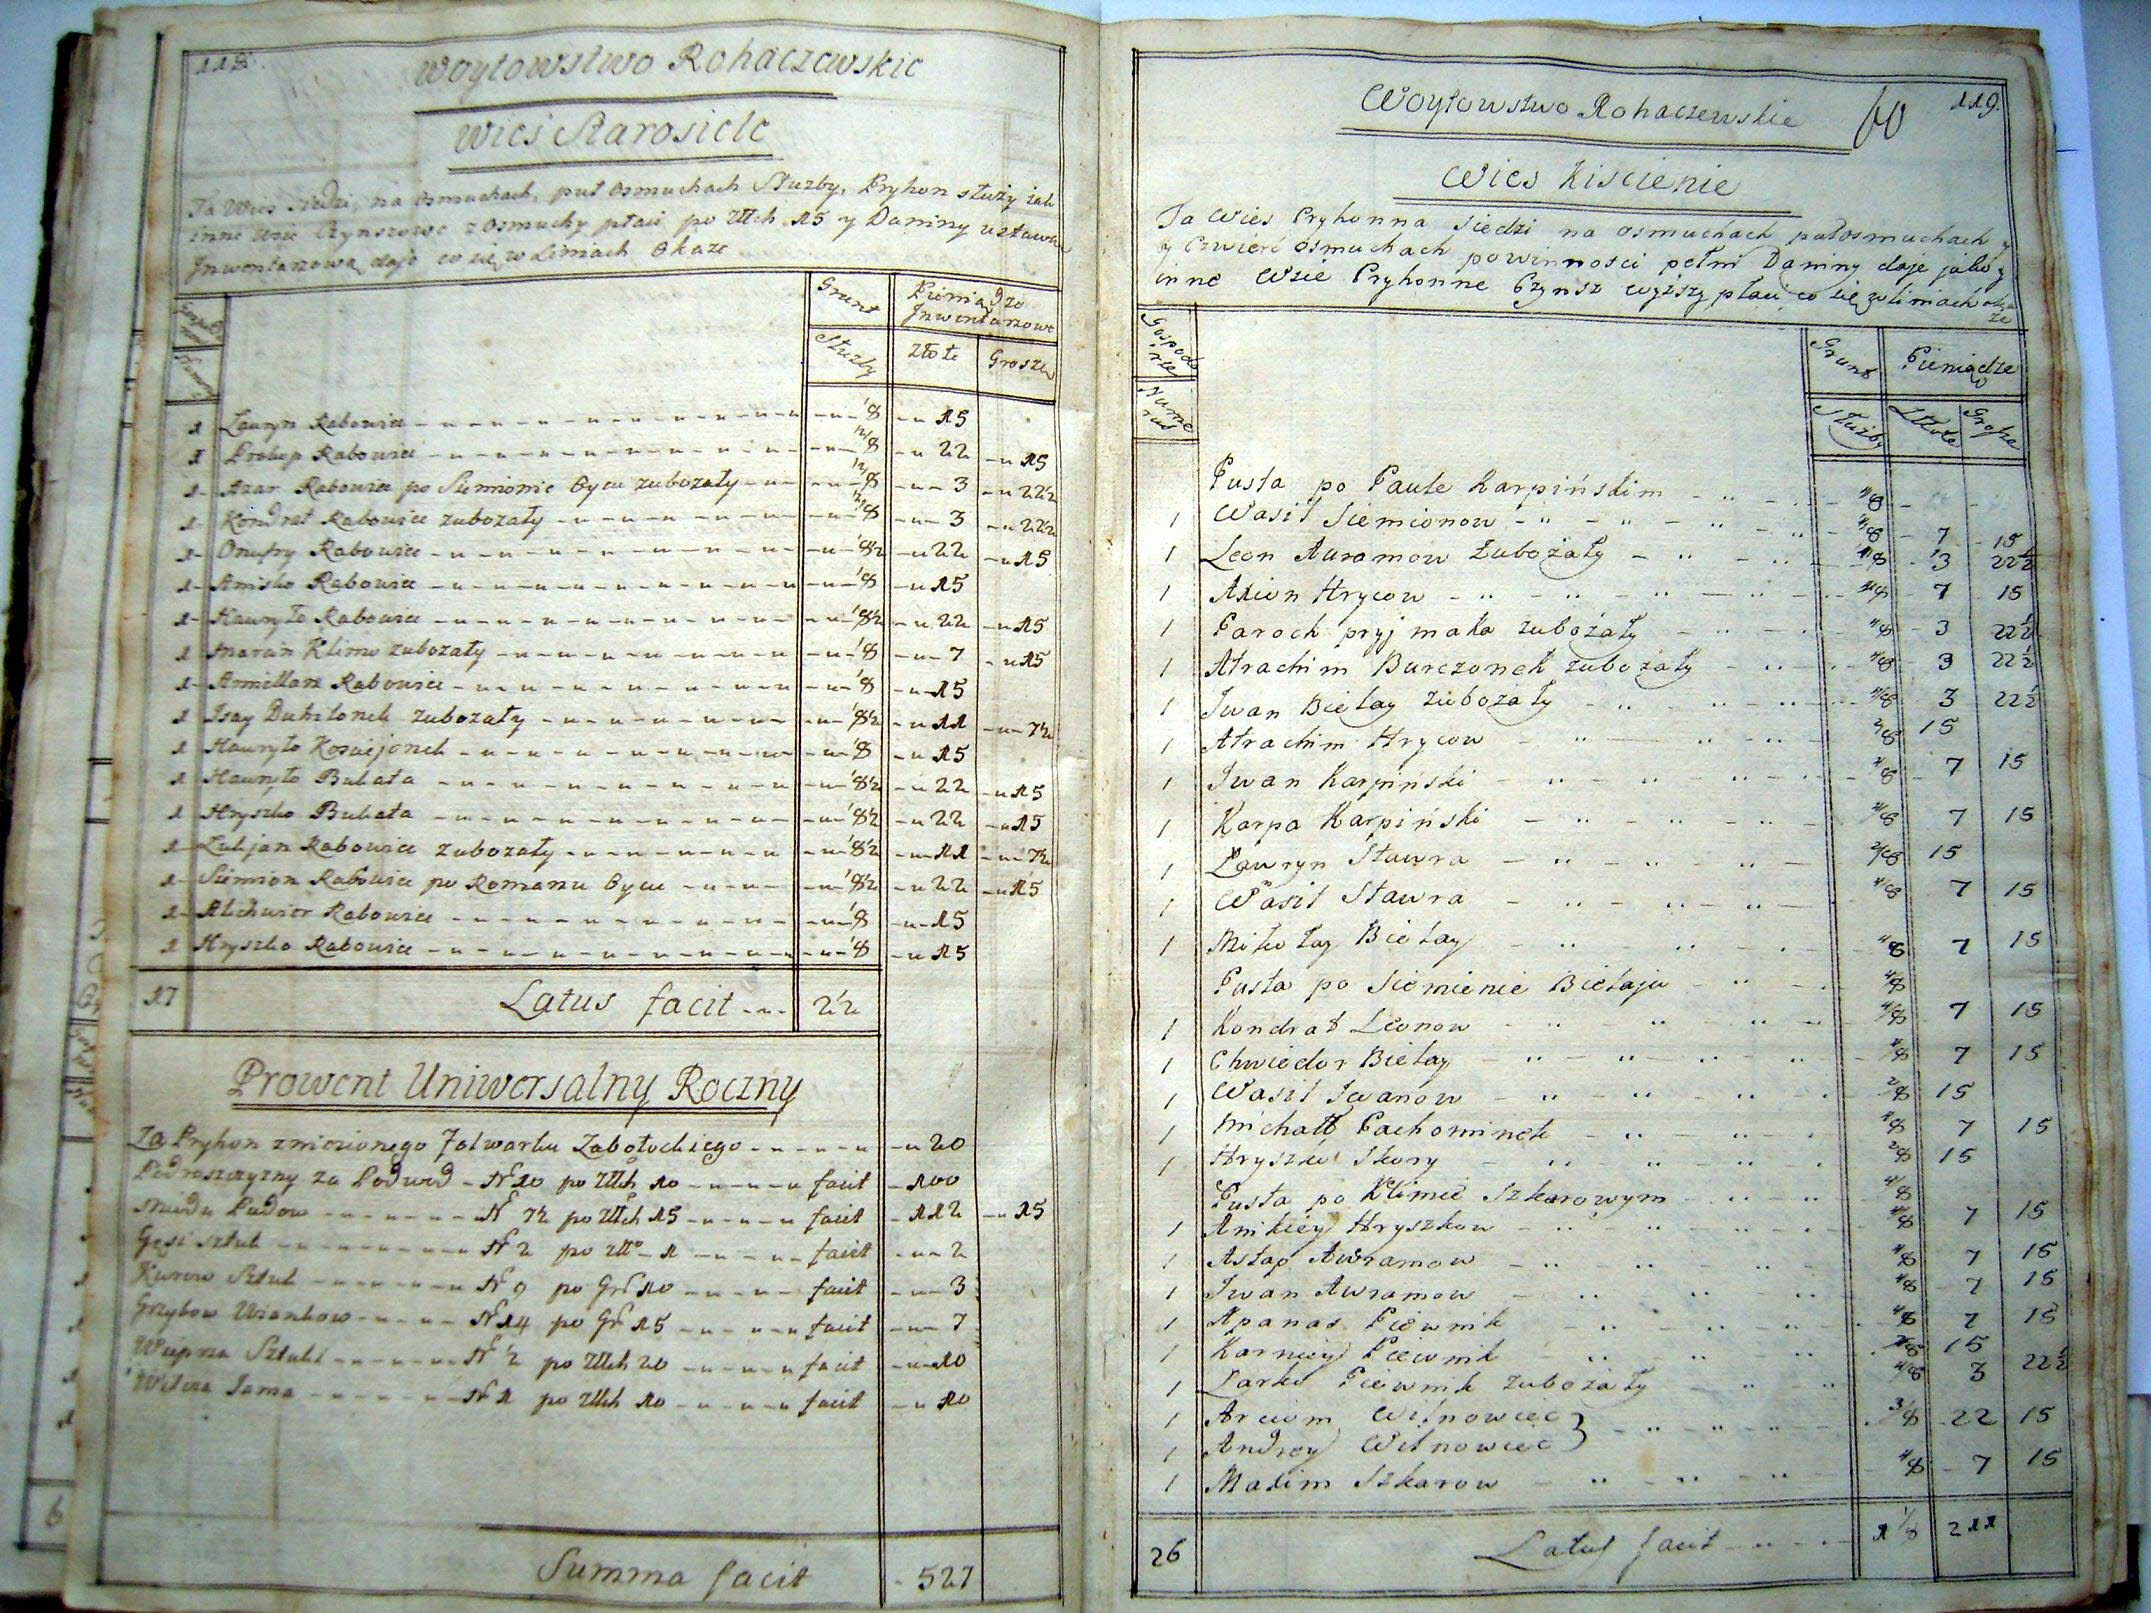 118.
Woytowstwo Rohaczewskie
Wies Starosiele
Ta Wies Siedzi, na osmuchach, puł osmuchach Służby, Pryhon służy iak
inne Wsie Czynszowe z osmuchy płaci po Złłch 15 y Daniny ustawą
Inwentarzową daje co się w Liniach Okaże
Grunt Pieniądze
Inwentarzowe
Służby Złote Grosze
1 Ławryn Rabowicz 1/8 15
1 Prokop Rabowicz 22 15
1 Azar Rabowicz po Siemionie Oycu zubozały 3 22½
1 Kondrat Rabowicz zubozały 3 22½
1 Onufry Rabowicz 1/8½ 22 15
1 Anisko Rabowicz 1/8 15
1 Hawryło Rabowicz 1/8½ 22 15
1 Klimu zubozały 1/8 7 15
1 Rabowicz 1/8 15
1 Isay zubozały 1/8½ 11 7½
1 Hawryło 1/8 15
1 Hawryło Bukata 1/8½ 22 15
1 Hryszko Bukata 1/8½ 22 15
1 Łukjan Rabowicz zubozały 1/8½ 11 7½
1 Siemion Rabowicz po Romanu Oycu 1/8½ 22 15
1 Alchwier Rabowicz 1/8 15
1 Hryszko Rabowicz 1/8 15
17 Latus facit 2½
Prowent Uniwersalny Roczny
Za Pryhon zniesionego Folwarku Zabołockiego 20
Podroszczyzny za Podwod Nº 10 po Złłch 10 facit 100
Miodu Pudow Nº 7½ po Złłch 15 facit 112 15
Gęsi sztuk Nº 2 po Złło 1 facit 2
Kurow Sztuk Nº 9 po Gr 10 facit 3
Grzybow Wiankow Nº 14 po Gr 15 facit 7
Wieprza Sztuki Nº ½ po Złłch 20 facit 10
Wilcza Jama Nº 1 po Złłch 10 facit 10
Summa facit 527
Woytowstwo Rohaczewskie 60 119.
Wies Kiscienie
Ta Wies Pryhonna siedzi na osmuchach pułosmuchach y
y Czwierć osmuchach powinności pełni Daniny daje jako y
inne Wsie Pryhonne Czynsz wyższy płaci co się w liniach oka
że
Gospoda
rze Grunt Pieniądze
Nume
rus Służby Złote Grosze
Pusta po Paule Karpińskim
1 Wasil Siemionow 7 15
1 Leon Auramow zubożały 3 22½
1 Axion Hrycow 7 15
1 Paroch pryjmaka zubożały 3 22½
1 Atrachim Burczonek zubożały 3 22½
1 Iwan Biełay zubozały 3 22½
1 Atrachim Hrycow 2/8 15
1 Iwan Karpiński 7 15
1 Karpa Karpiński 7 15
1 Ławryn Stawra 2/8 15
1 Wasil Stawra 7 15
1 Mikołay Biełay 7 15
Pusta po Siemienie Biełaju
1 Kondrat Leonow 7 15
1 Chwiedor Biełay 7 15
1 Wasil Iwanow 2/8 15
1 Michałł Pachominek 7 15
1 Hryszko Skory 2/8 15
Pusta po Klimie Szkarowym
1 Anikiey Hryszkow 7 15
1 Astap Awramow 7 15
1 Iwan Awramow 7 15
1 Apanas Piewnik 7 15
1 Karniey Piewnik 2/8 15
1 Łarko Piewnik zubożały 3 22½
1 Arciom Wilnowiec }
1 Androy Wilnowiec } 3/8 22 15
1 Maxim Szkarow 7 15
26 Latus facit 211